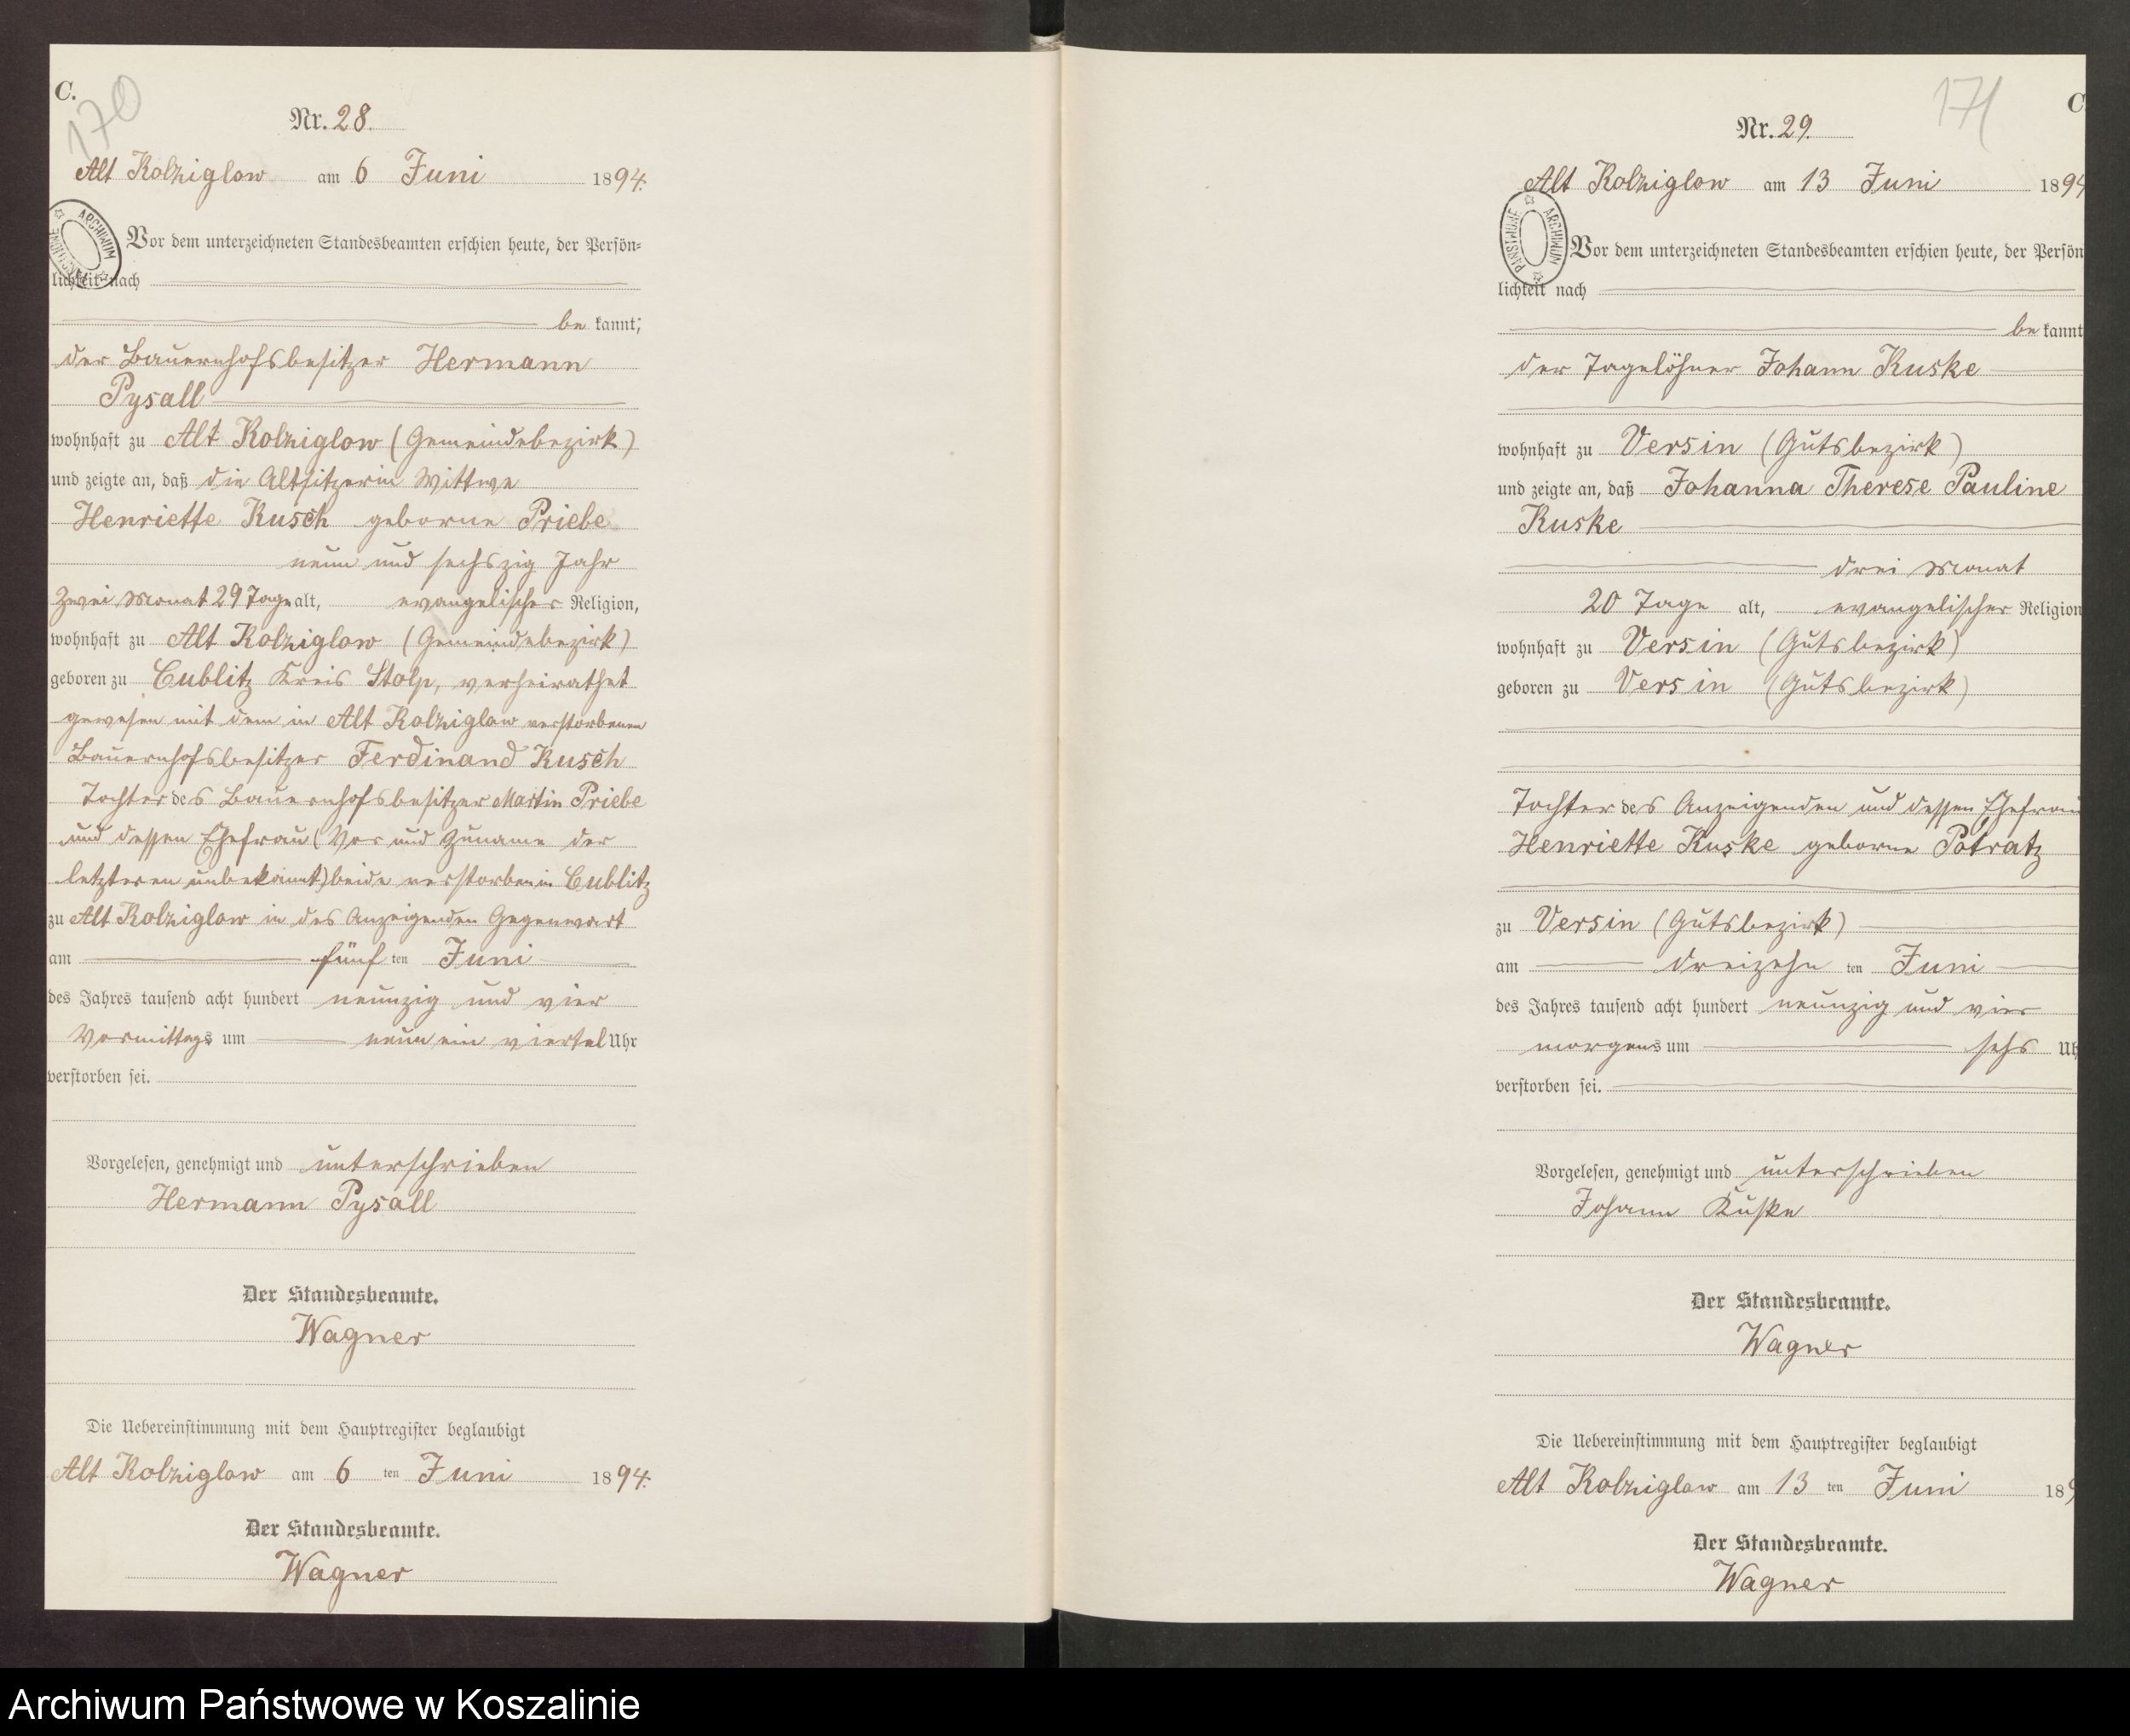 C.
170
Nr. 28.
Alt Kolziglow am 6 Juni 1894.
ARCHIWUM PAŃSTWOWE
Vor dem unterzeichneten Standesbeamten erschien heute, der Persön-
lichkeit nach
be kannt;
der Bauernhofsbesitzer Hermann
Pysall
wohnhaft zu Alt Kolziglow (Gemeindebezirk)
und zeigte an, daß die Altsitzerin Wittwe
Henriette Kusch geborne Priebe
neun und sechszig Jahr
zwei Monat 29 Tage alt, evangelischer Religion,
wohnhaft zu Alt Kolziglow (Gemeindebezirk)
geboren zu Cublitz Kreis Stolp, verheirathet
gewesen mit dem in Alt Kolziglow verstorbenen
Bauernhofsbesitzer Ferdinand Kusch
Tochter des Bauernhofsbesitzer Martin Priebe
und dessen Ehefrau (Vor und Zuname der
letzteren unbekannt) beide verstorben in Cublitz
zu Alt Kolziglow in des Anzeigenden Gegenwart
am fünf ten Juni
des Jahres tausend acht hundert neunzig und vier
Vormittags um neun ein viertel Uhr
verstorben sei.
Vorgelesen, genehmigt und unterschrieben
Hermann Pysall
Der Standesbeamte.
Wagner
Die Uebereinstimmung mit dem Hauptregister beglaubigt
Alt Kolziglow am 6 ten Juni 1894.
Der Standesbeamte.
Wagner
171
C
Nr. 29.
Alt Kolziglow am 13 Juni 1894
ARCHIWUM PAŃSTWOWE
Vor dem unterzeichneten Standesbeamten erschien heute, der Persön
lichkeit nach
be kannt
der Tagelöhner Johann Kuske
wohnhaft zu Versin (Gutsbezirk)
und zeigte an, daß Johanna Therese Pauline
Kuske
drei Monat
20 Tage alt, evangelischer Religion
wohnhaft zu Versin (Gutsbezirk)
geboren zu Versin (Gutsbezirk)
Tochter des Anzeigenden und dessen Ehefrau
Henriette Kuske geborne Potratz
zu Versin (Gutsbezirk)
am dreizehn ten Juni
des Jahres tausend acht hundert neunzig und vier
morgens um sechs Uh
verstorben sei.
Vorgelesen, genehmigt und unterschrieben
Johann Kuske
Der Standesbeamte.
Wagner
Die Uebereinstimmung mit dem Hauptregister beglaubigt
Alt Kolziglow am 13 ten Juni 189
Der Standesbeamte.
Wagner
Archiwum Państwowe w Koszalinie